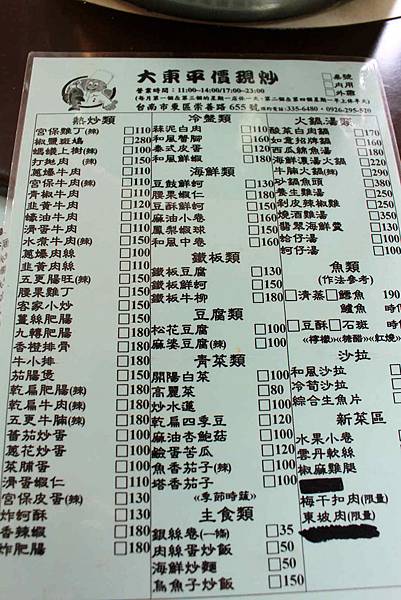 大東平價現炒
營業時間：11:00~14:00/17:00~23:00
(每月第一個&第三個的星期一店休一天，第二個&第四個星期一早上休半天)
台南市東區崇善路 655 號 預約電話:335-6480、0926-295-520
□桌號
□內用
□外帶
熱炒類
宮保雞丁(辣) □110
椒鹽斑鳩 □280
螞蟻上樹(辣) □100
打拋肉(辣) □150
蔥爆牛肉 □110
宮保牛肉(辣) □110
青椒牛肉 □110
韭黃牛肉 □120
蠔油牛肉 □110
滑蛋牛肉 □110
水煮牛肉(辣) □180
蔥爆肉絲 □100
韭黃肉絲 □110
五更腸旺(辣) □150
腰果雞丁 □110
客家小炒 □150
薑絲肥腸 □180
九轉肥腸 □180
香橙排骨 □180
牛小排 □180
茄腸煲 □150
乾扁肥腸(辣) □180
乾扁牛肉(辣) □180
五更牛腩(辣) □180
蕃茄炒蛋 □100
蔥花炒蛋 □100
菜脯蛋 □100
滑蛋蝦仁 □110
宮保皮蛋(辣) □130
炸蚵酥 □130
香辣蝦 □180
炸肥腸 □180
冷盤類
蒜泥白肉 □140
和風管腳 □100
泰式皮蛋 □120
和風鮮蝦 □180
海鮮類
豆鼓鮮蚵 □130
腰果蝦仁 □180
豆酥鮮蚵 □150
麻油小卷 □160
鳳梨蝦球 □150
和風中卷 □160
鐵板類
鐵板豆腐 □130
鐵板鮮蚵 □150
鐵板牛柳 □180
豆腐類
松花豆腐 □100
麻婆豆腐(辣) □100
青菜類
開陽白菜 □100
高麗菜 □80
炒水蓮 □100
乾扁四季豆 □120
麻油杏鮑菇 □100
鹹蛋苦瓜 □120
魚香茄子(辣) □100
塔香茄子 □100
«季節時蔬»
主食類
銀絲卷(一條) □35
肉絲蛋炒飯 □50
海鮮炒麵 □50
烏魚子炒飯 □150
火鍋湯類
酸菜白肉鍋 □170
如意招牌鍋
西瓜綿魚湯 □180
海鮮濃湯火鍋
牛腩火鍋(辣) □350
砂鍋魚頭 □380
養生雞湯 □250
剝皮辣椒雞 □350
燒酒雞湯 □350
翡翠海鮮羹 □130
蛤仔湯 □100
蚵仔湯 □100
魚類
(作法參考)
□清蒸 □鱈魚 190
鱸魚 時
□豆酥 □石斑 時
«檸檬» «糖醋» «紅燒»
沙拉
和風沙拉
冷筍沙拉
綜合生魚片
新菜區
水果小卷
雲丹軟絲
椒麻雞腿
梅干扣肉(限量)
東坡肉(限量)